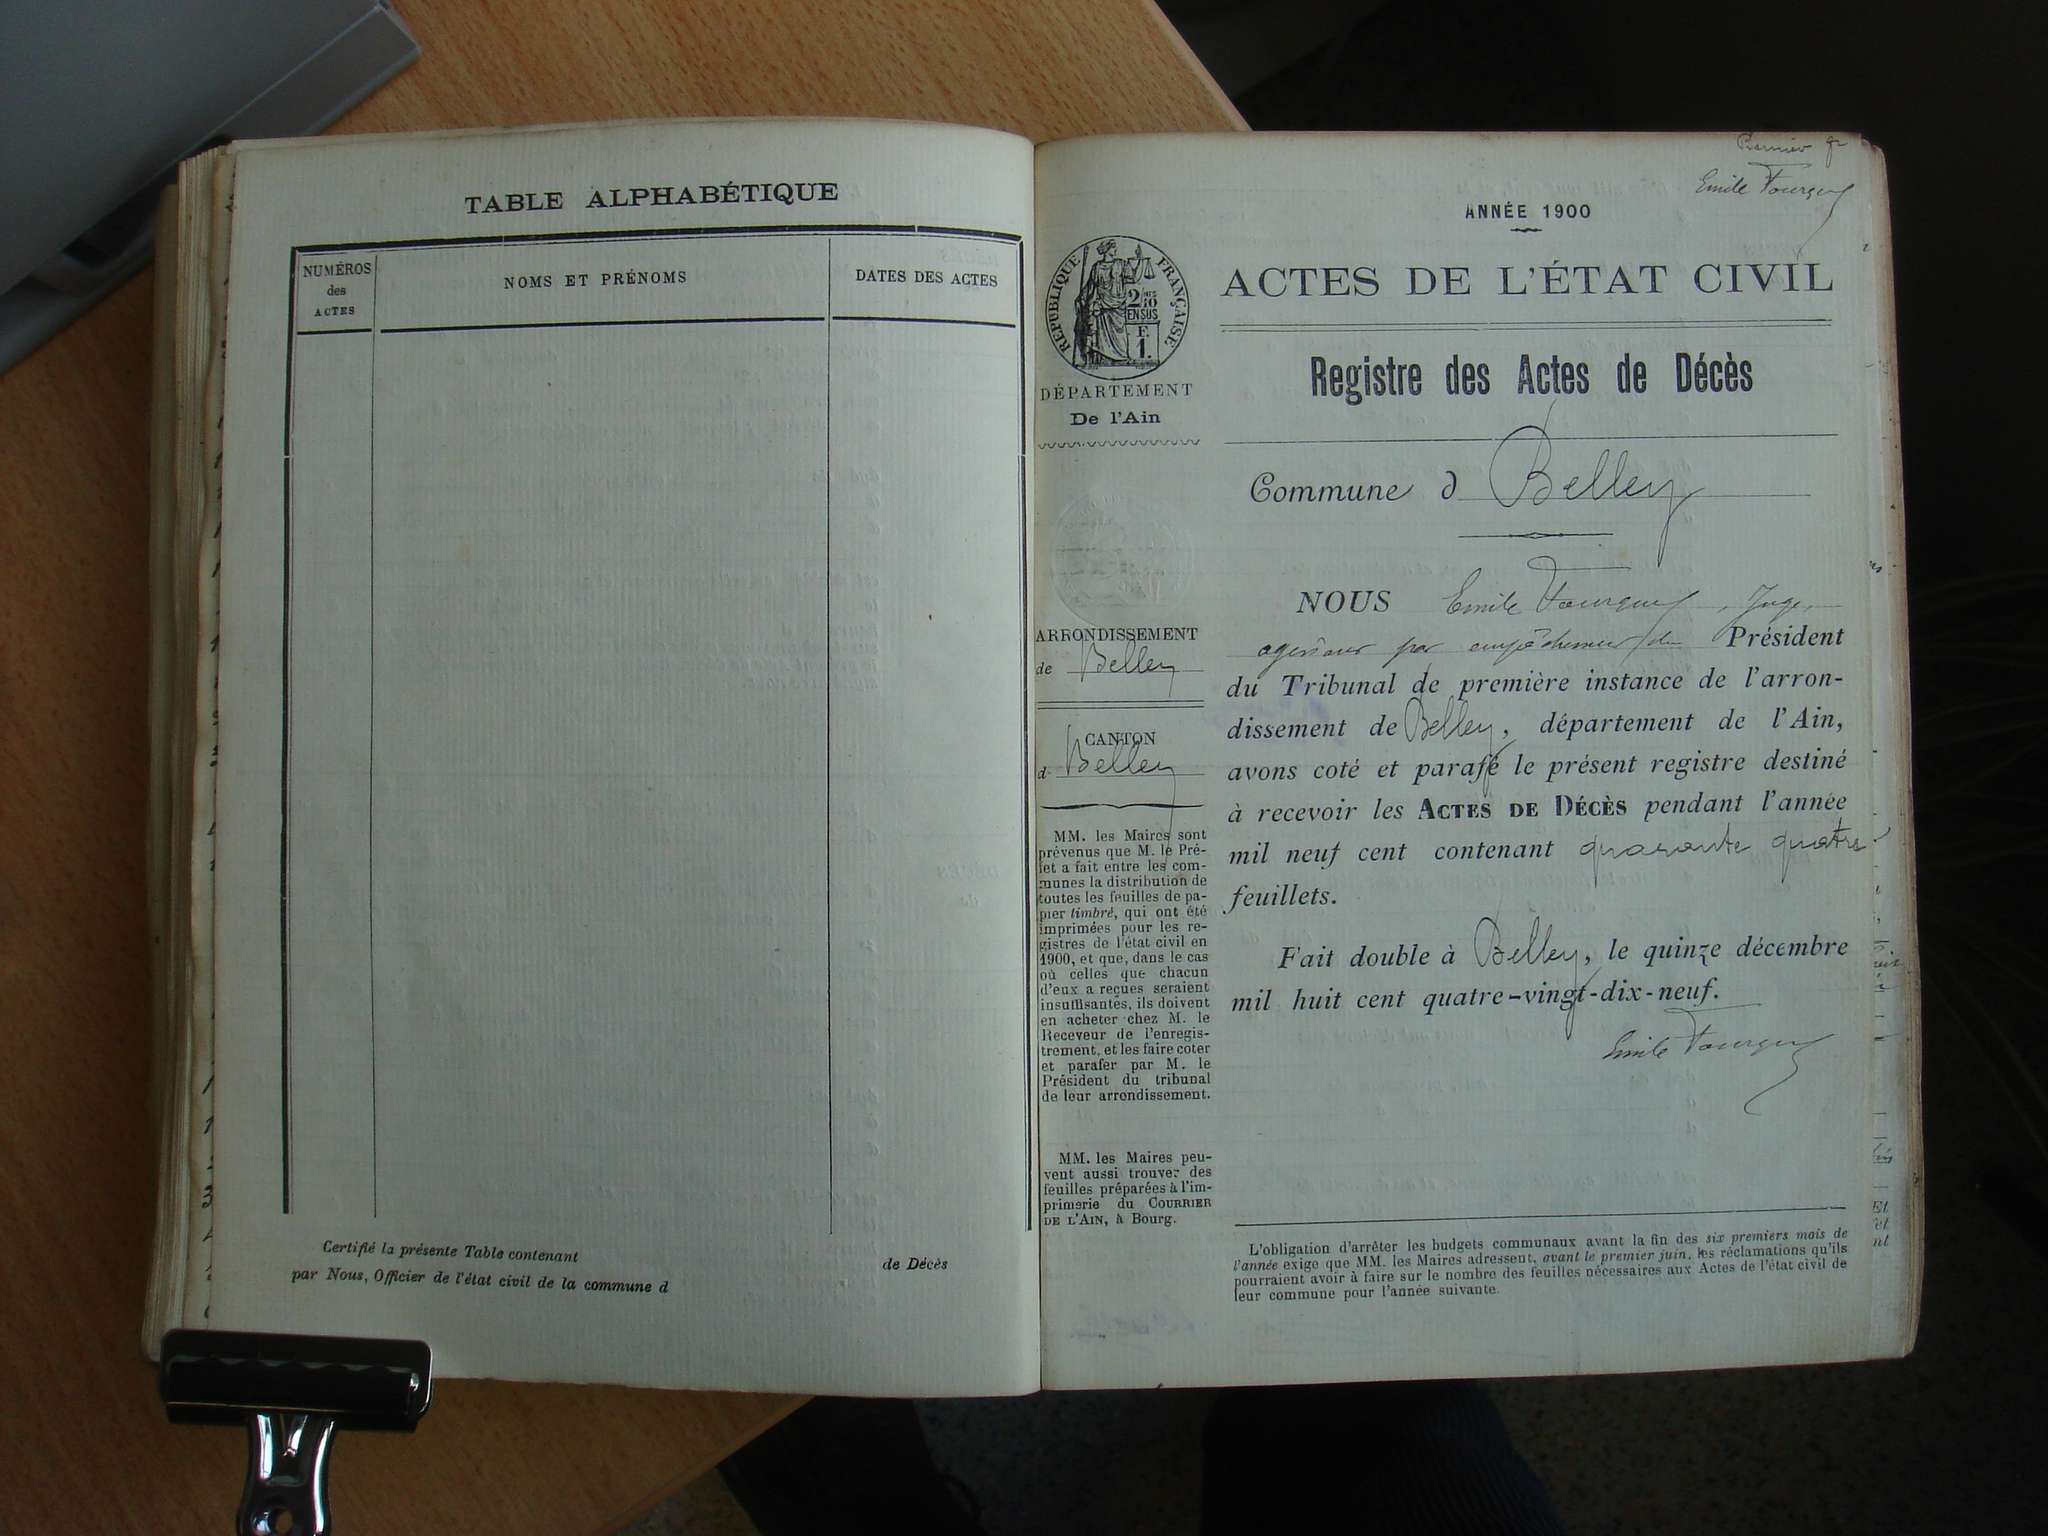 TABLE ALPHABÉTIQUE
NUMÉROS
des
ACTES
NOMS ET PRÉNOMS
DATES DES ACTES
Certifié la présente Table contenant
de Décès
par Nous, Officier de l'état civil de la commune d
Emile Fourguy
ANNÉE 1900
RÉPUBLIQUE FRANÇAISE
2/10
EN SUS
F.
1.
DÉPARTEMENT
De l'Ain
ARRONDISSEMENT
de Belley
CANTON
d Belley
MM. les Maires sont
prévenus que M. le Pré-
fet a fait entre les com-
munes la distribution de
toutes les feuilles de pa-
pier timbré, qui ont été
imprimées pour les re-
gistres de l'état civil en
1900, et que, dans le cas
où celles que chacun
d'eux a reçues seraient
insuffisantes, ils doivent
en acheter chez M. le
Receveur de l'enregis-
trement, et les faire coter
et parafer par M. le
Président du tribunal
de leur arrondissement.
MM. les Maires peu-
vent aussi trouver des
feuilles préparées à l'im-
primerie du COURRIER
DE L'AIN, à Bourg.
ACTES DE L'ÉTAT CIVIL
Registre des Actes de Décès
Commune d Belley
NOUS Emile Fourguy, Juge,
par empêchement du Président
du Tribunal de première instance de l'arron-
dissement de Belley, département de l'Ain,
avons coté et parafé le présent registre destiné
à recevoir les ACTES DE DÉCÈS pendant l'année
mil neuf cent contenant quarante quatre
feuillets.
Fait double à Belley, le quinze décembre
mil huit cent quatre-vingt-dix-neuf.
Emile Fourguy
L'obligation d'arrêter les budgets communaux avant la fin des six premiers mois de
l'année exige que MM. les Maires adressent, avant le premier juin, les réclamations qu'ils
pourraient avoir à faire sur le nombre des feuilles nécessaires aux Actes de l'état civil de
leur commune pour l'année suivante.